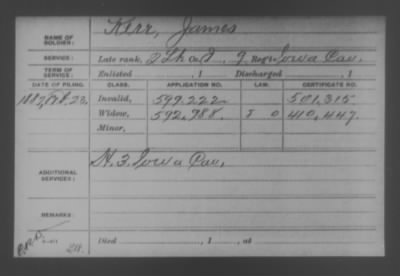 NAME OF SOLDIER: Kerr, James
SERVICE: Late rank, 2 Lt. Co. I, 9 Reg't Iowa Cav.
TERM OF SERVICE: Enlisted , 1 Discharged , 1
DATE OF FILING. CLASS. APPLICATION NO. LAW. CERTIFICATE NO.
1887, Feb. 23, Invalid, 599.222 501.315
Widow, 592.988 410.447
Minor,
ADDITIONAL SERVICES: H. 3. Iowa Cav,
REMARKS:
Died , 1 , at